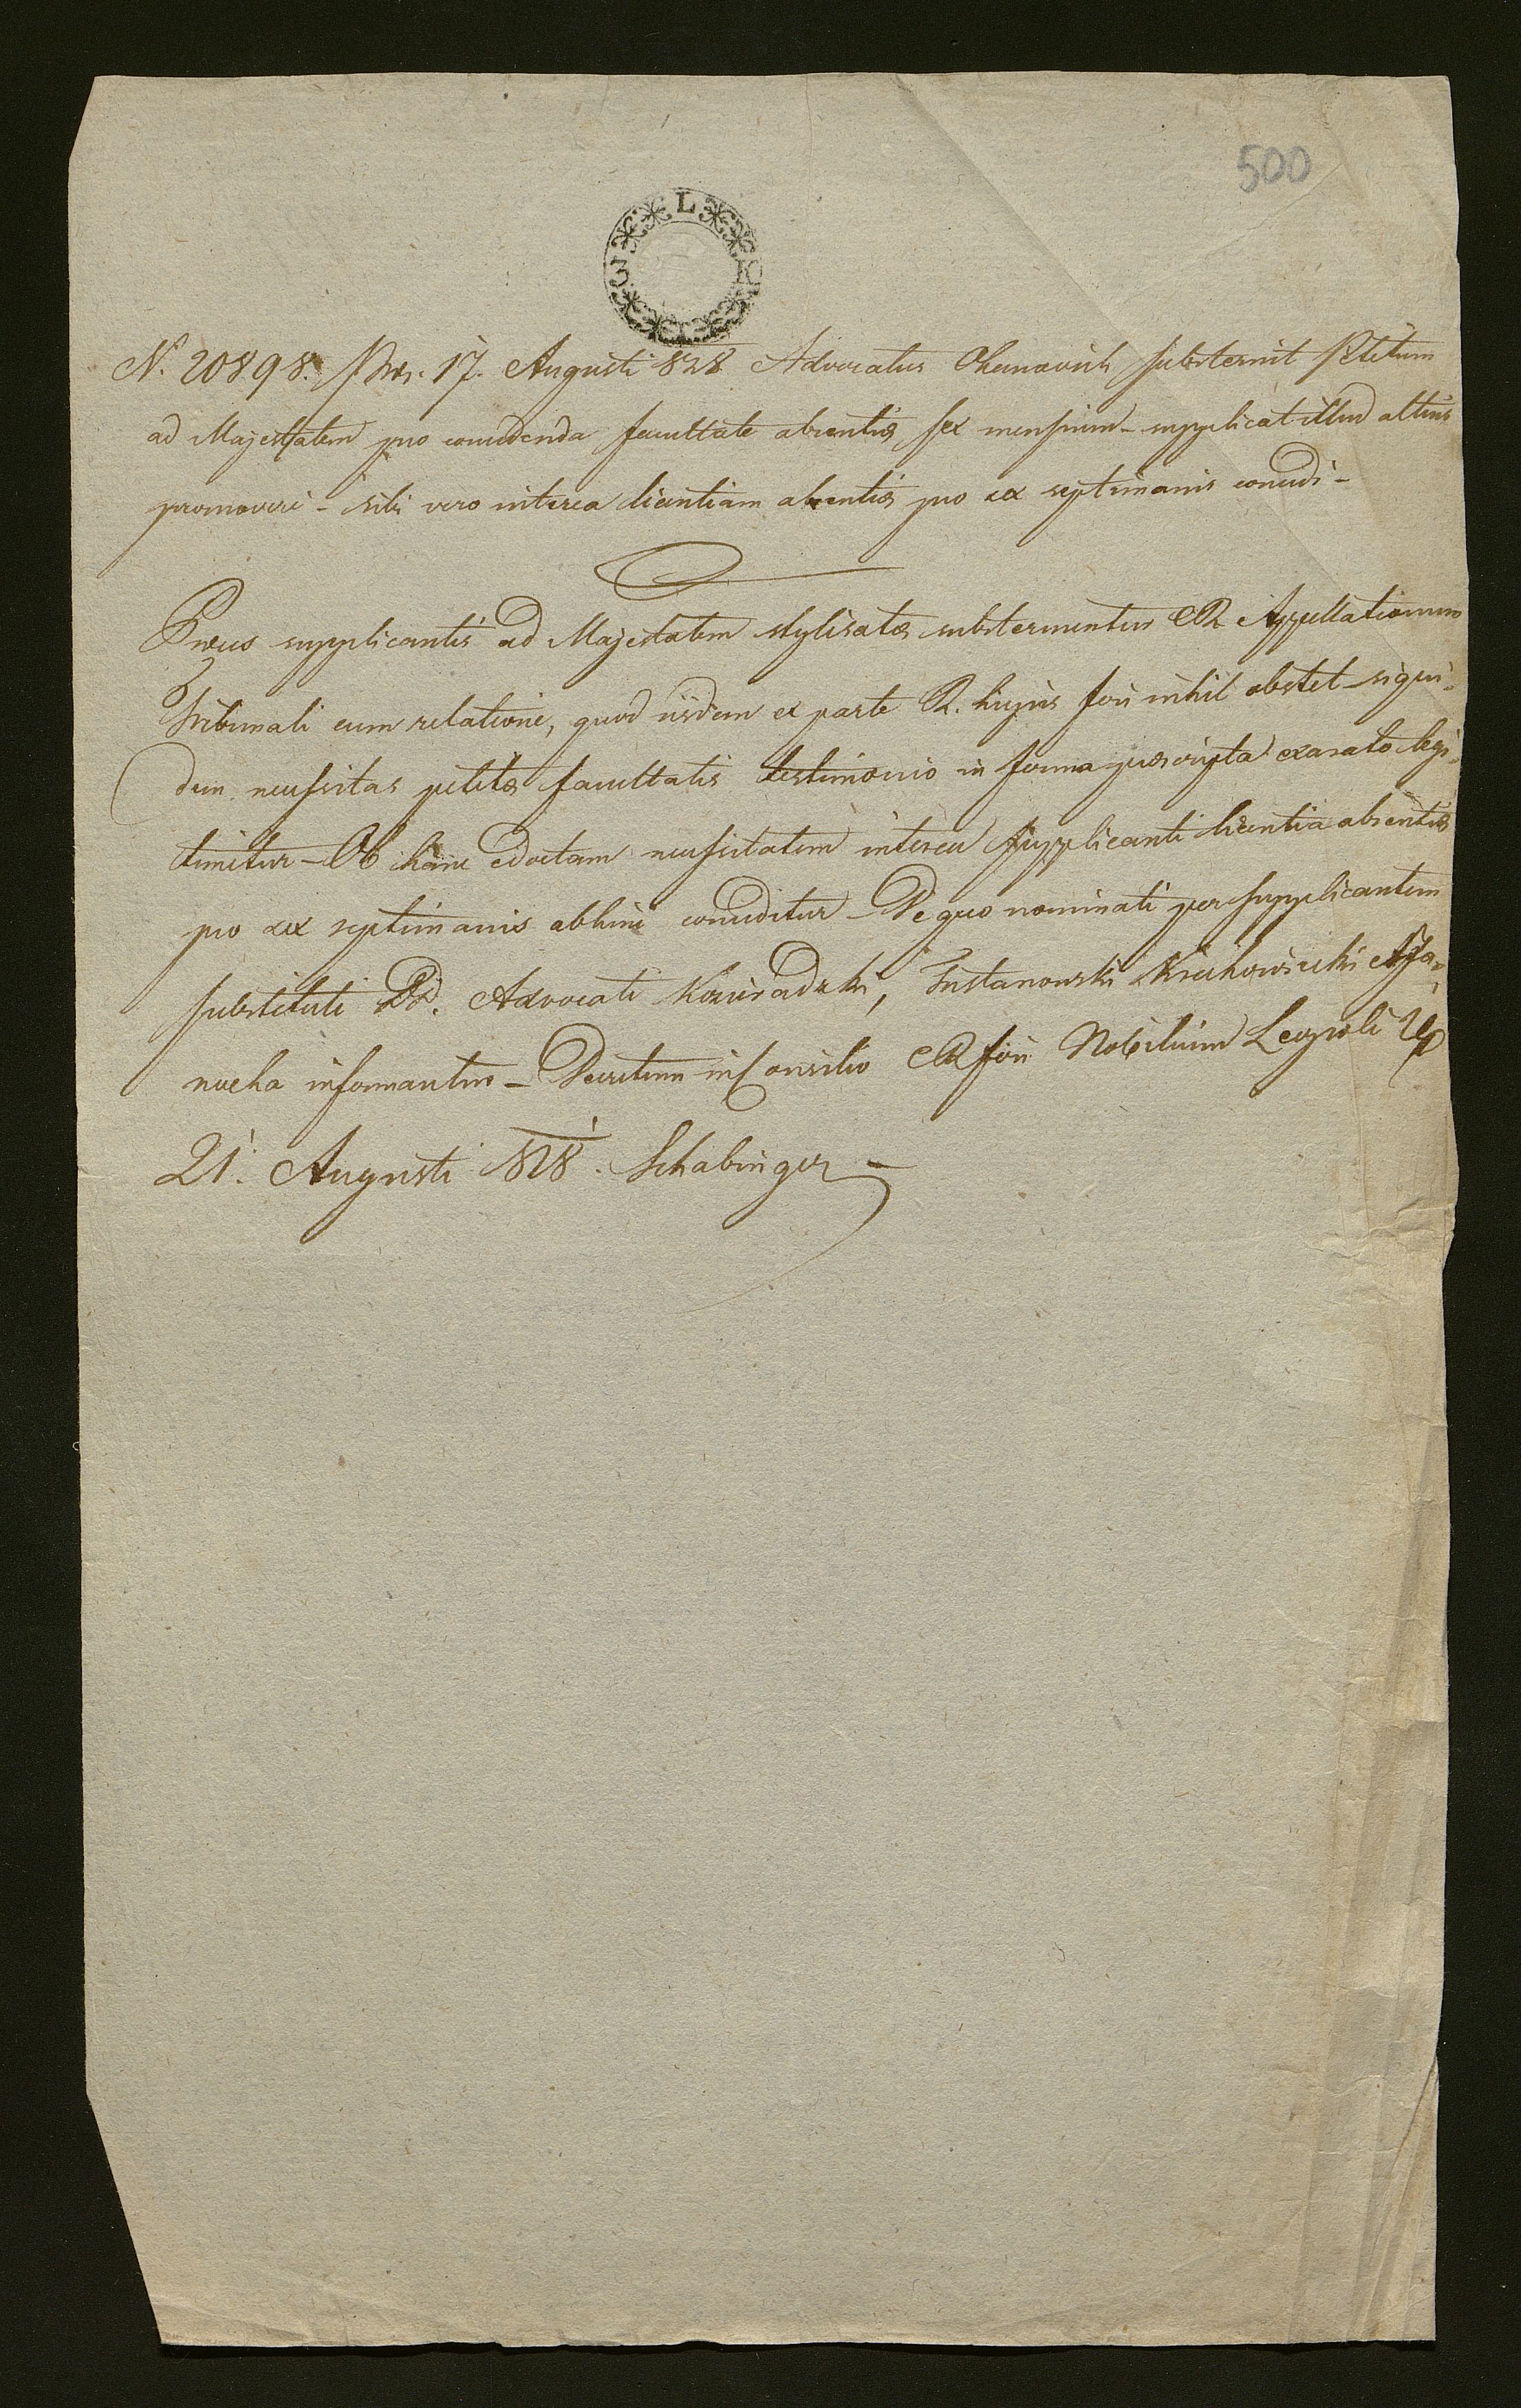 500
3 L K
N. 20898. Prs. 17. Augusti 828 Advocatus Ohanovich substernit Petitum
ad Majestatem pro concedenda facultate absentiæ sex mensium - supplicat illud altius
promoveri - sibi vero interea licentiam absentiæ pro sex septimanis concedi -
Preces supplicantis ad Majestatem stylisatæ substernuntur CR Appellationum
Tribunali cum relatione, quod iisdem ex parte R. hujus fori nihil obstet - siqui-
dem necessitas petitæ facultatis testimonio in forma præscripta exarato legi-
timetur - Ob hanc edoctam necessitatem interea supplicanti licentia absentiæ
pro sex septimanis abhinc conceditur - De quo nominati per supplicantem
substituti DD. Advocati Komeradzki, Tustanowski Krechowiecki
informantur - Decretum in Consilio CR fori Nobilium Leopoli
21. Augusti 828. Schabinger